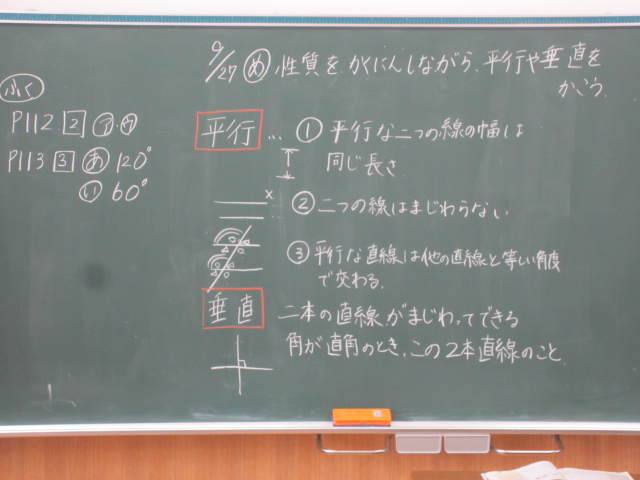 9/27 め 性質を、かくにんしながら、平行や垂直を
かこう。
ふく
P112 2 イ・カ
P113 3 あ 120°
い 60°
平行 … ① 平行な二つの線の幅は
同じ長さ
② 二つの線はまじわらない
③ 平行な直線は他の直線と等しい角度
で交わる。
垂直 二本の直線がまじわってできる
角が直角のとき、この2本直線のこと。